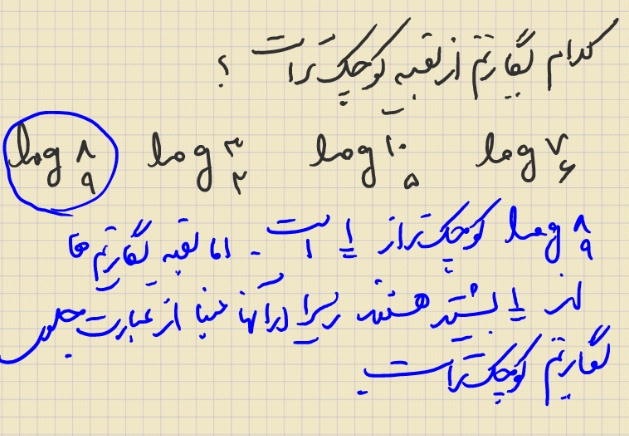 کدام لگاریتم از بقیه کوچک‌تر است ؟
log ۸ ۹ log ۳ ۲ log ۱۰ ۵ log ۷ ۶
log ۸ ۹ کوچک‌تر از 1 است. اما بقیه لگاریتم ها
از 1 بیشتر هستند زیرا در آنها مبنا از عبارت جلوی
لگاریتم کوچک‌تر است.